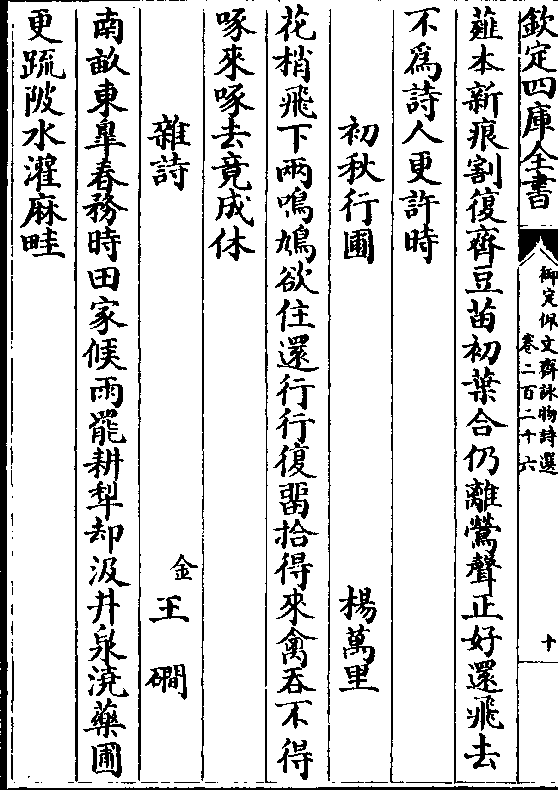 欽定四庫全書
御定佩文齋詠物詩選
卷二百二十六
十
薤本新痕割復齊豆苗初葉合仍離鶯聲正好還飛去
不爲詩人更許時
初秋行圃　楊萬里
花梢飛下兩鳴鳩欲住還行行復畱拾得來禽吞不得
啄來啄去竟成休
雜詩　金王磵
南畝東臯春務時田家候雨罷耕犂却汲井泉澆藥圃
更疏陂水濯麻畦